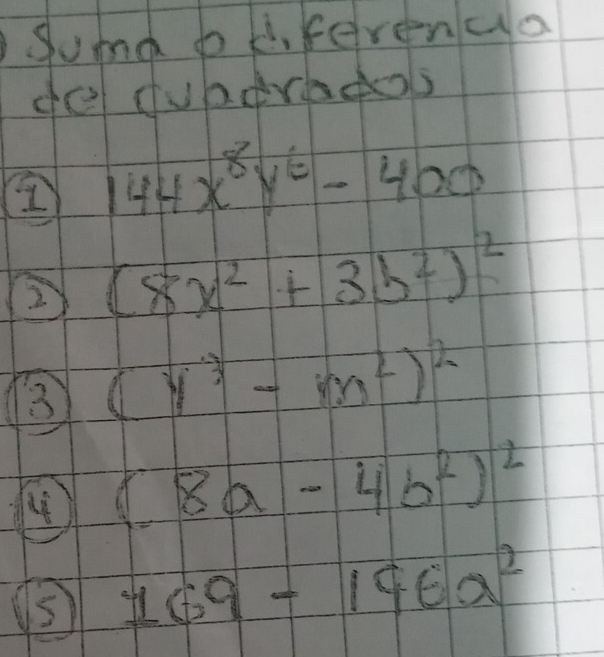 Suma o diferencia
de cuadrados
① 144x⁸y⁶ - 400
② (8x² + 3b²)²
③ (y³ - m²)²
④ (8a - 4b²)²
⑤ 169 - 196a²